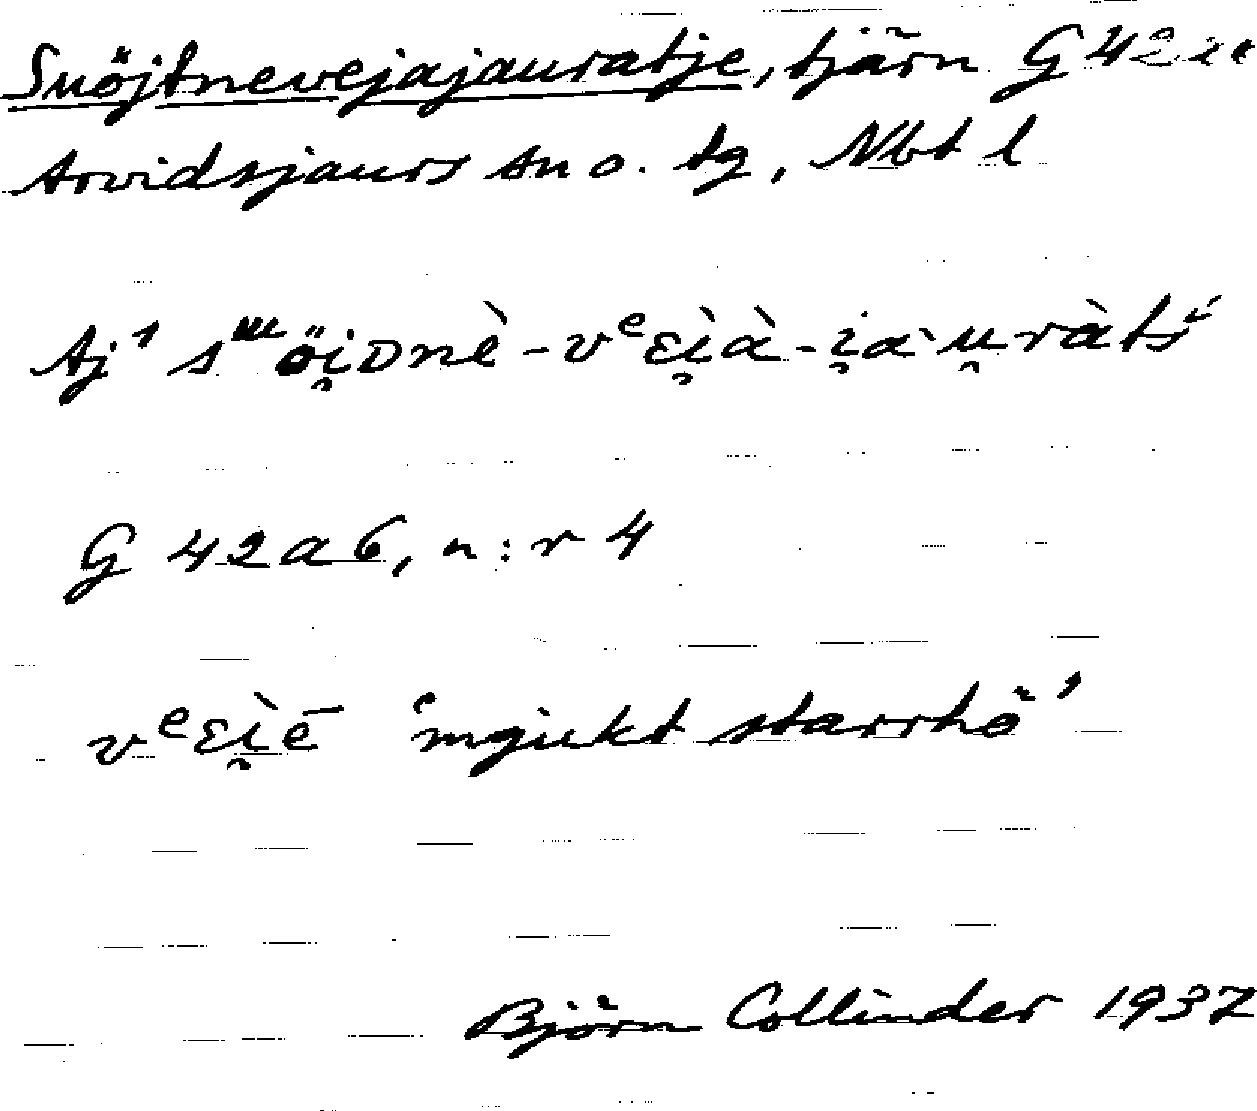 Suöjtnevejajauratje, tjärn G 42
Arvidsjaurs sn o. tg, Nbt l
Aj¹ sᵚöi̯ᴅnè-vᵉεi̯ὰ-i̯au̯ràtsʹ
G 42 a 6, n:r 4
vᵉεi̯ē 'mjukt starrhö'
Björn Collinder 1937